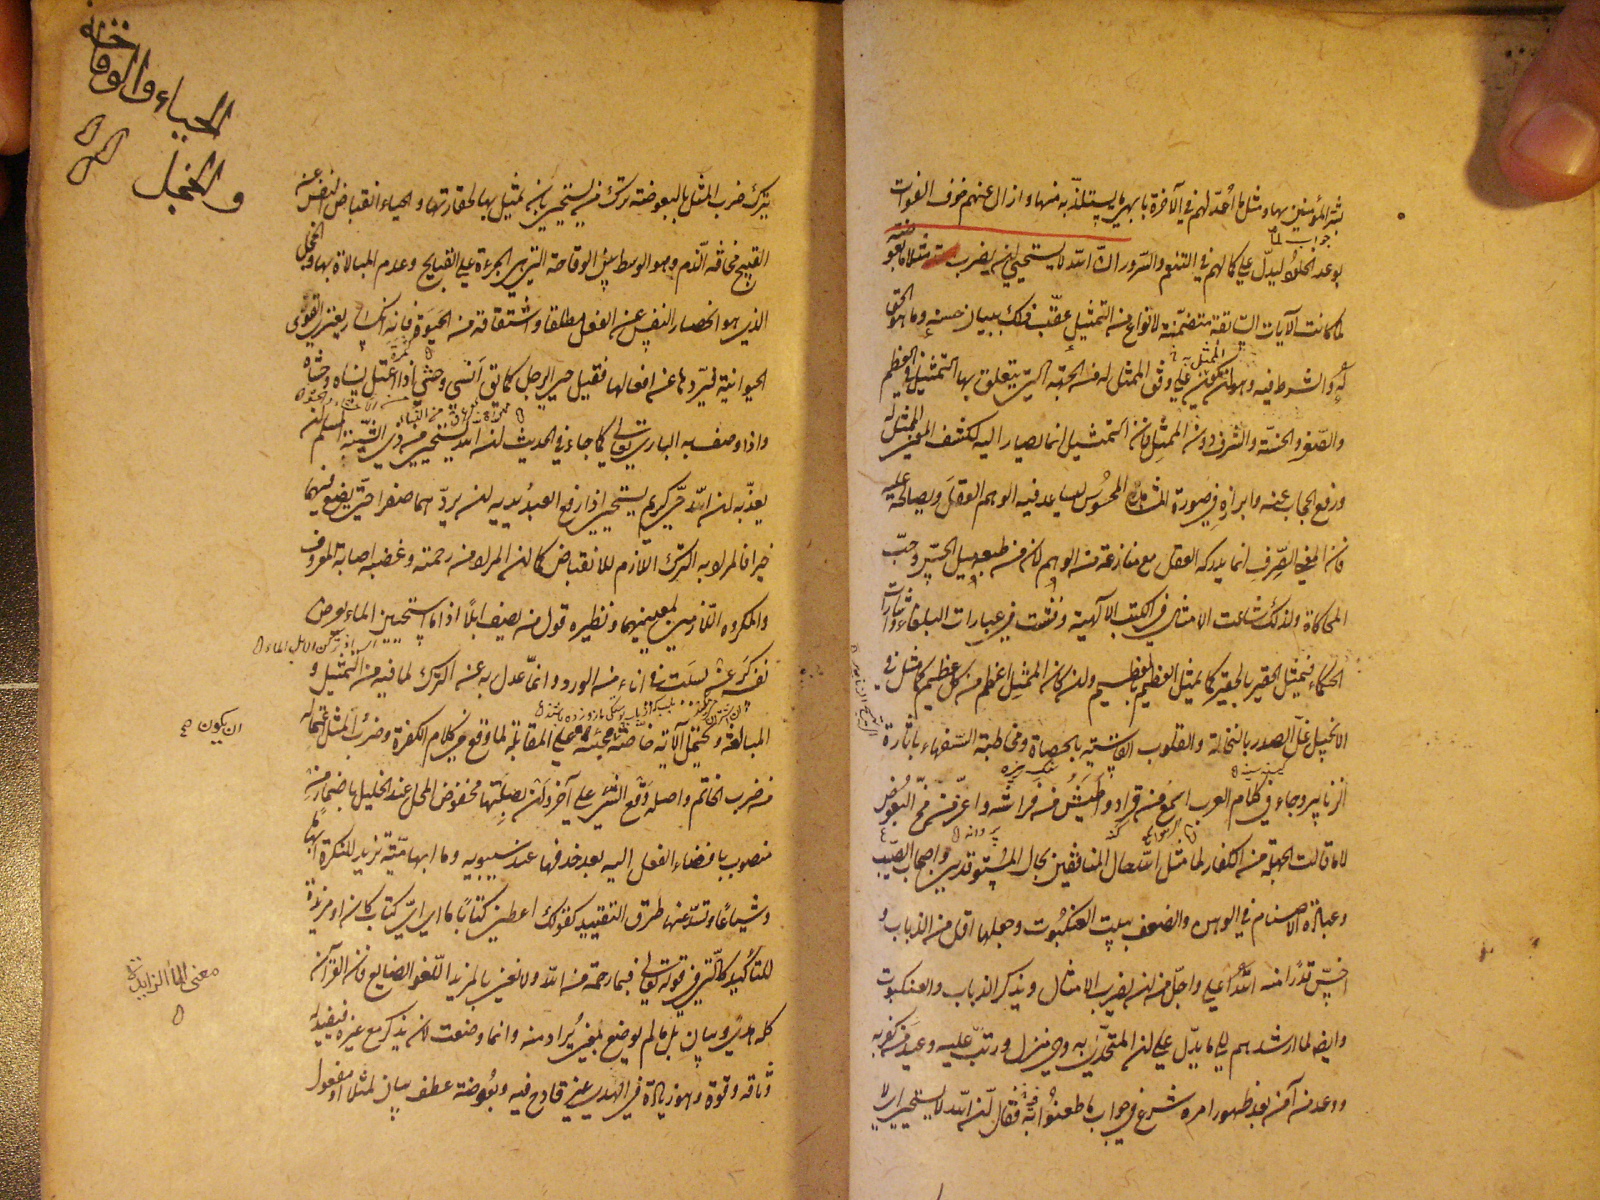 بشر المؤمنين بها ومثل ما أعد لهم في الآخرة بأبهى ما يستلذ به منها وازال عنهم خوف الفوات
جواب لما
بوعد الخلود ليدل على كمالهم في التنعم والسرور ان الله لا يستحيي ان يضرب مثلا ما بعوضة
لما كانت الآيات السابقة متضمنة لانواع من التمثيل عقب ذلك ببيان حسنه وما هو الحق
له والشرط فيه وهو ان يكون على وفق الممثل له من الجهة التي يتعلق بها التمثيل في العظم
والصغر والخسة والشرف دون الممثل فان التمثيل انما يصار اليه لكشف المعنى الممثل له
ورفع الحجاب عنه وابرازه في صورة المشاهد المحسوس ليساعد فيه الوهم العقل ويصالحه عليه
فان المعنى الصرف انما يدركه العقل مع منازعة من الوهم لان من طبعه ميل الحس وحب
المحاكاة ولذلك شاعت الامثال في الكتب الالهية وفشت في عبارات البلغاء واشارات
الحكماء فيمثل الحقير بالحقير كما يمثل العظيم بالعظيم وان كان الممثل اعظم من كل عظيم كما مثل في
الانجيل غل الصدر بالنخالة والقلوب القاسية بالحصاة ومخاطبة السفهاء باثارة
سنك ريزه
الزنابير وجاء في كلام العرب اسمع من قراد واطيش من فراشة واعز من مخ البعوض
پروانه
لا ما قالت الجهلة من الكفار لما مثل الله حال المنافقين بحال المستوقدين واصحاب الصيب
وعبادة الاصنام في الوهن والضعف ببيت العنكبوت وجعلها اقل من الذباب و
اخس قدرا منه الله اعلى واجل من ان يضرب الامثال ويذكر الذباب والعنكبوت
وايضا لما ارشدهم الى ما يدل على ان المتحدى به وحي منزل ورتب عليه وعيد من كفر به
ووعد من آمن به بعد ظهور امره شرع في جواب ما طعنوا به فقال ان الله لا يستحيي اي لا
الحياء والوقاحة
والخجل
يترك ضرب المثل بالبعوضة ترك من يستحيي ان يمثل بها لحقارتها والحياء انقباض النفس عن
القبيح مخافة الذم وهو الوسط بين الوقاحة التي هي الجرءة على القبايح وعدم المبالاة بها والخجل
الذي هو انحصار النفس عن الفعل مطلقا واشتقاقه من الحيوة فانه انكسار يعتري القوى
الحيوانية فيردها عن افعالها فقيل حيي الرجل كما يق نسي وحشي اذا اعتل نساه وحشاه
واذا وصف به الباري تعالى كما جاء في الحديث ان الله يستحيي من ذي الشيبة المسلم ان
يعذبه ان الله حيي كريم يستحيي اذا رفع العبد يديه ان يردهما صفرا حتى يضع فيهما
خيرا فالمراد به الترك اللازم للانقباض كما ان المراد من رحمته وغضبه اصابة المعروف
والمكروه اللازمين لمعنييهما ونظيره قول من يصف ابلا اذا ما استحين الماء يعرض
نفسه كرعن بسبت في اناء من الورد وانما عدل به عن الترك لما فيه من التمثيل و
المبالغة ويحتمل الآية خاصة مجيئه على المقابلة لما وقع في كلام الكفرة وضرب المثل اعتماله
ان يكون صح
من ضرب الخاتم واصله وقع الشيء على آخر وان بصلتها مخفوض المحل عند الخليل باضمار من
منصوب بافضاء الفعل اليه بعد حذفها عند سيبويه وما ابهامية تزيد للنكرة ابهاما
وشياعا وتسد عنها طرق التقييد كقولك اعطني كتابا ما اي اي كتاب كان او مزيدة
للتأكيد كالتي في قوله تعالى فبما رحمة من الله ولا نعني بالمزيد اللغو الضايع فان القرآن
معنى ما الزايدة
كله هدى وبيان بل ما لم يوضع لمعنى يراد منه وانما وضعت لان يذكر مع غيره فيفيد له
وثاقة وقوة وهو زيادة في الهدى غير قادح فيه وبعوضة عطف بيان لمثلا او مفعول